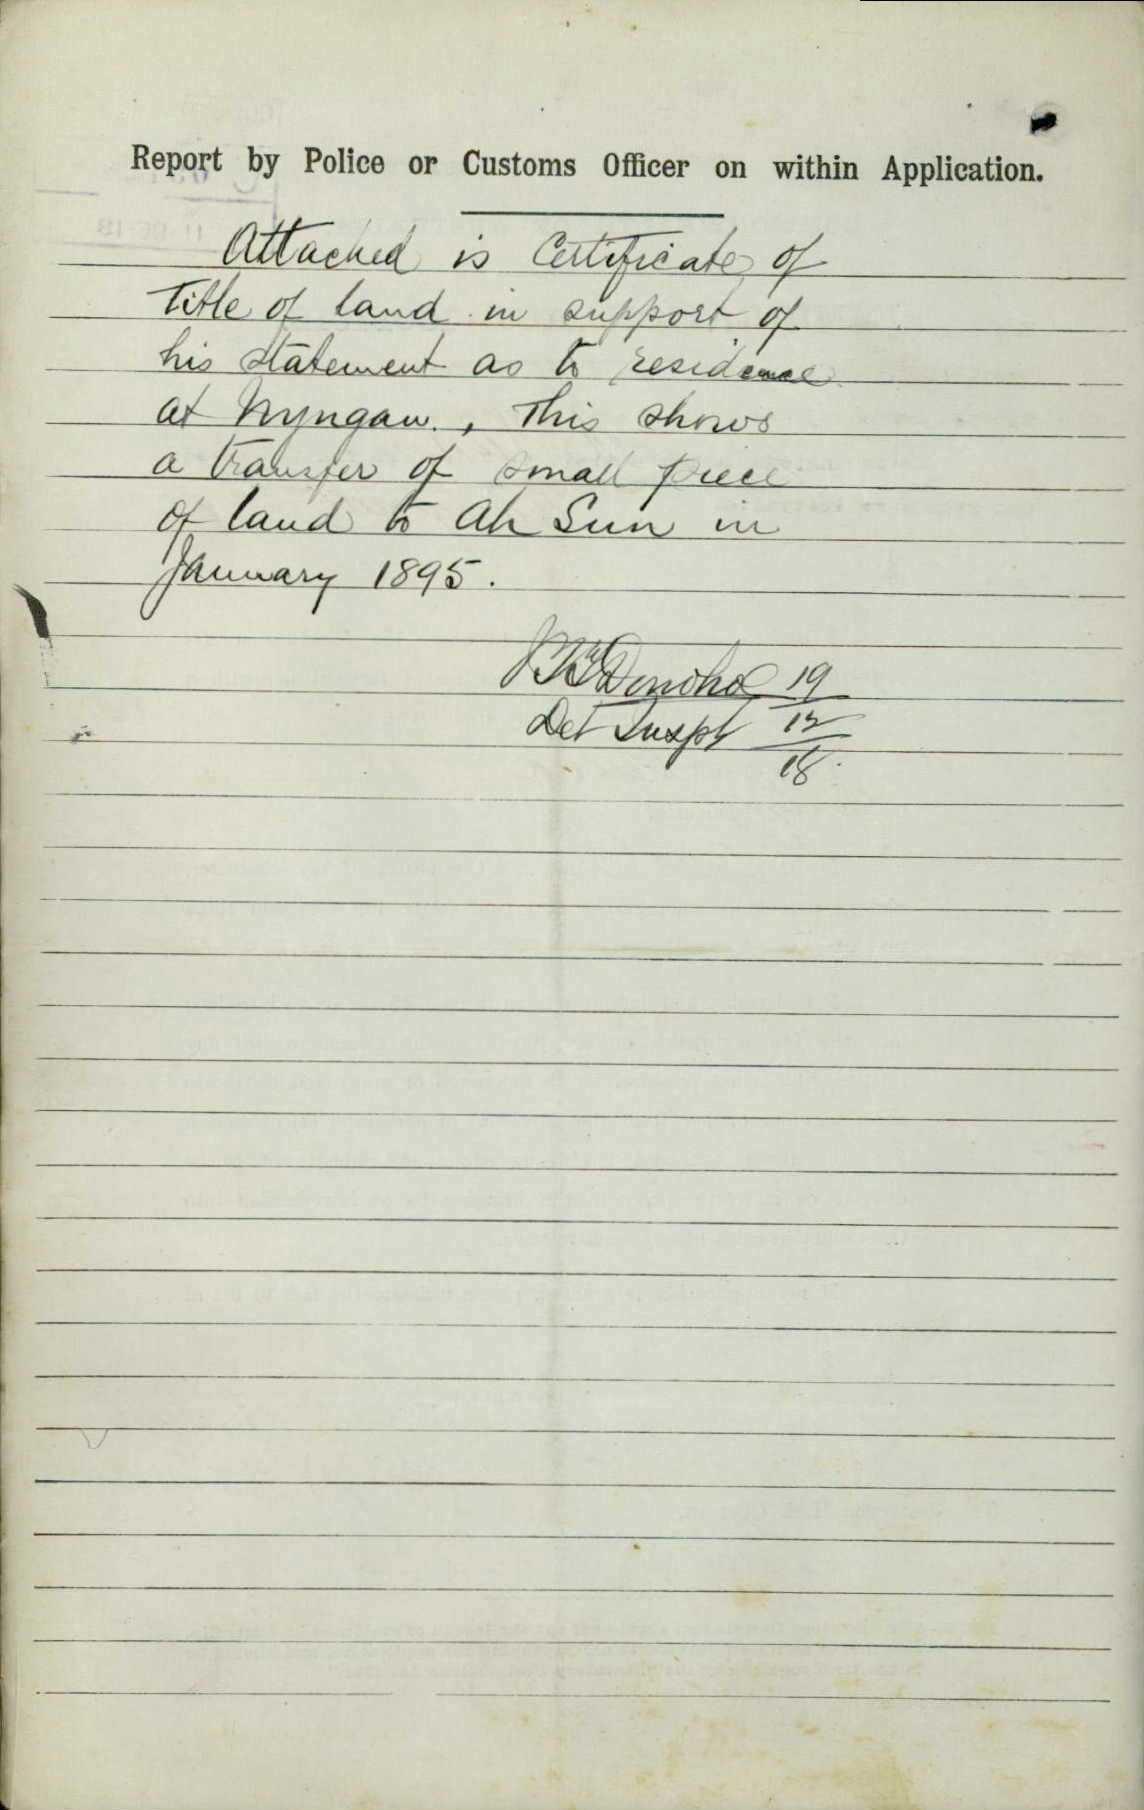 Report by Police or Customs Officer on within Application.
Attached is Certificate of
Title of land in support of
his statement as to residence
at Nyngan., This shows
a transfer of small piece
of land to Ah Sun in
January 1895.
Donohoe 19
Det Inspt 12
18.